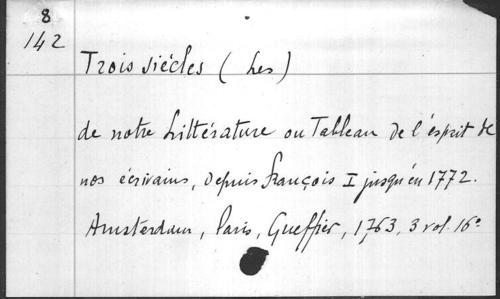 8
142
Trois siècles (Les)
de notre Littérature ou Tableau de l'ésprit de
nos écrivains, depuis François I jusqu'en 1772.
Amsterdam, Paris, Gueffier, 1763, 3 vol. 16º